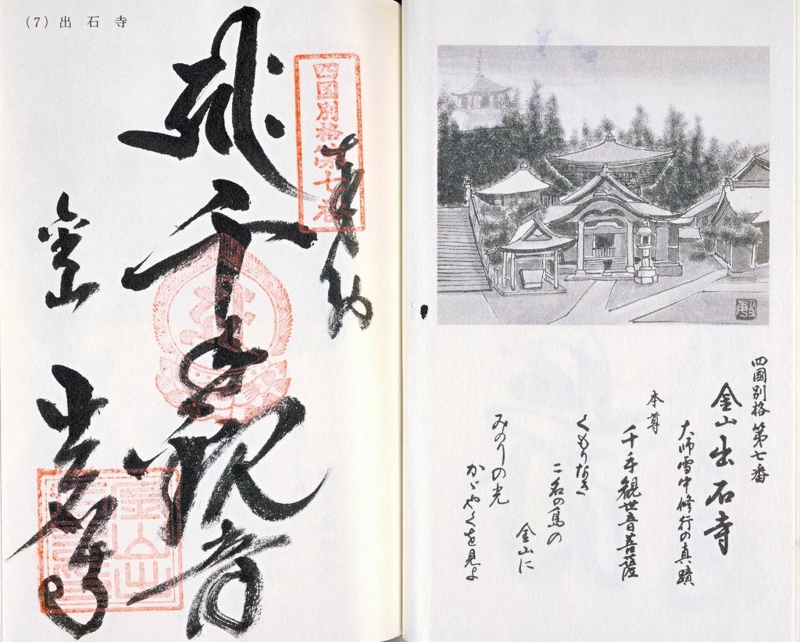 (7) 出石寺
四國別格第七番
奉納
千手観音
金山
出石寺
四國別格 第七番
金山出石寺
大師雪中修行の真蹟
本尊
千手観世音菩薩
くもりなき
二名の島の
金山に
みのりの光
かゞやくを見よ